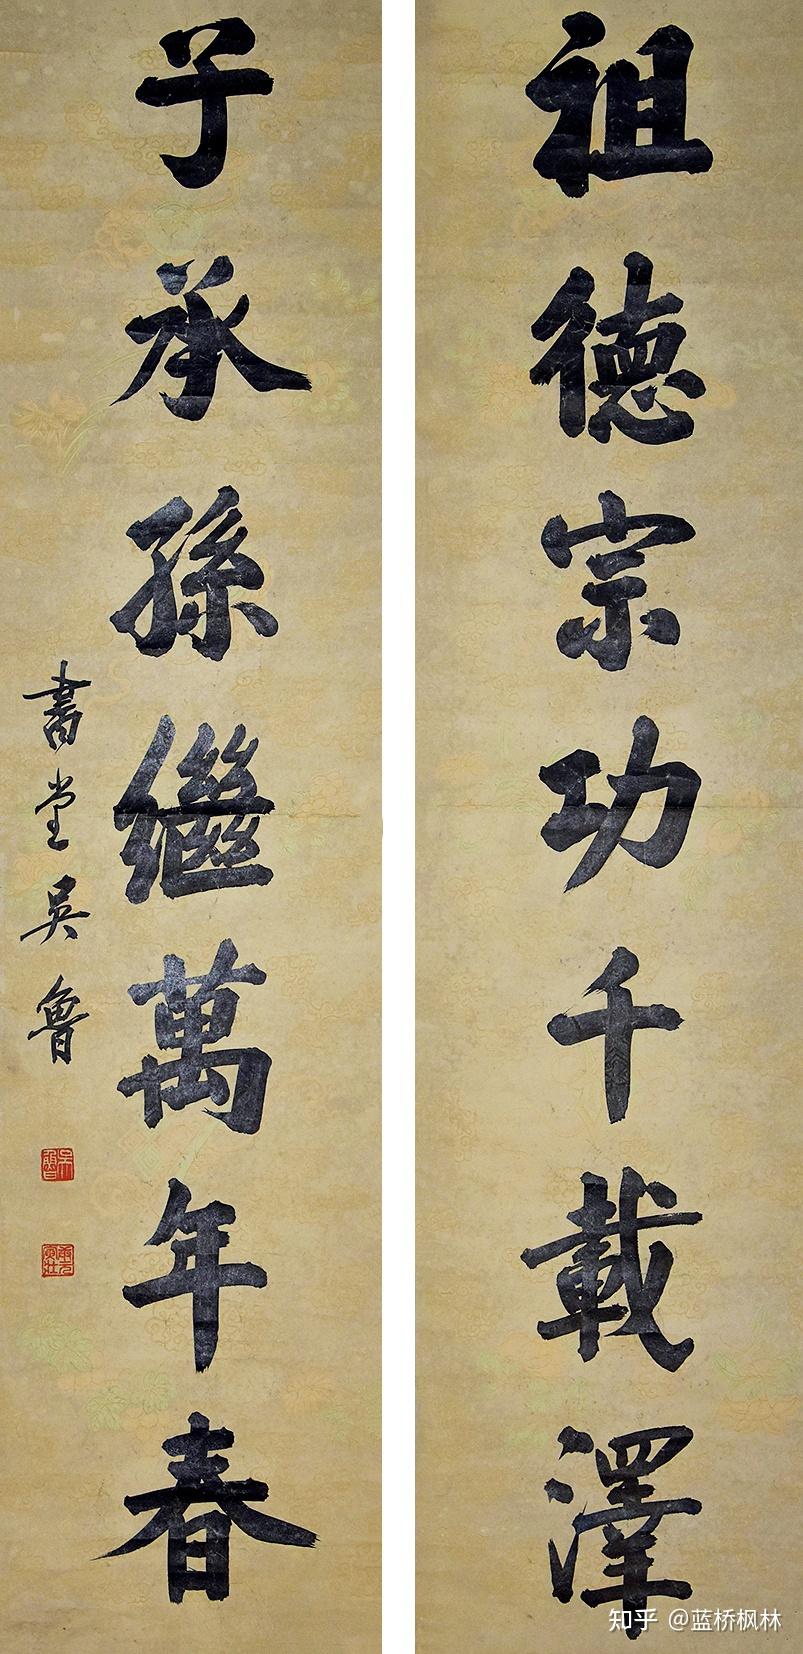 祖德宗功千載澤
子承孫繼萬年春
書堂吳魯
吳魯
知乎 @蓝桥枫林